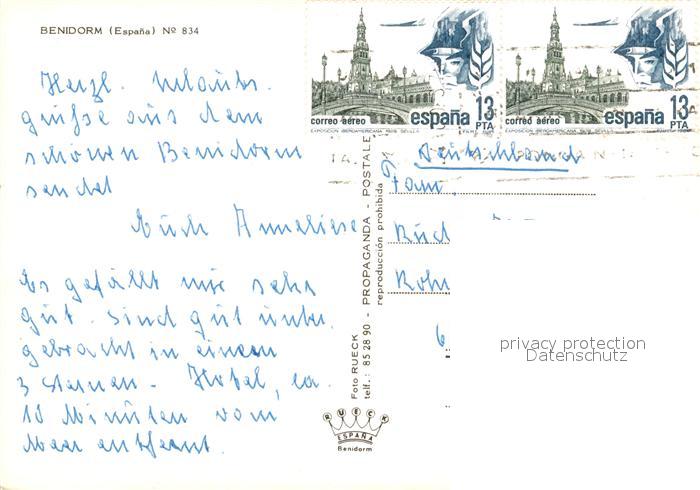 BENIDORM (España) Nº 834
Herzl. Urlaubs.
grüße aus dem
schönen Benidorm
sendet
Eure Anneliese
Es gefällt mir sehr
gut. Sind gut unter.
gebracht in einem
3 Sternen - Hotel, ca.
10 Minuten vom
Meer entfernt.
Foto RUECK
telf.: 85 28 90 - PROPAGANDA - POSTALES
reproducción prohibida
RUECK
ESPAÑA
Benidorm
correo aéreo
españa
13
PTA
EXPOSICION IBEROAMERICANA 1929. SEVILLA
correo aéreo
españa
13
PTA
EXPOSICION IBEROAMERICANA 1929. SEVILLA
Deutschland
Fam.
privacy protection
Datenschutz